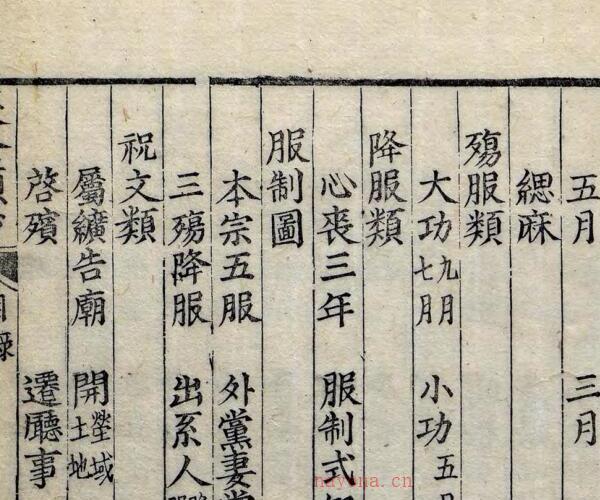 五月 三月
緦麻
殤服類
大功九月七月 小功五
降服類
心喪三年 服制式
服制圖
本宗五服 外黨妻
三殤降服 出系人
祝文類
屬纊告廟 開塋域土地
啓殯 遷廳事
目錄
nayona.cn